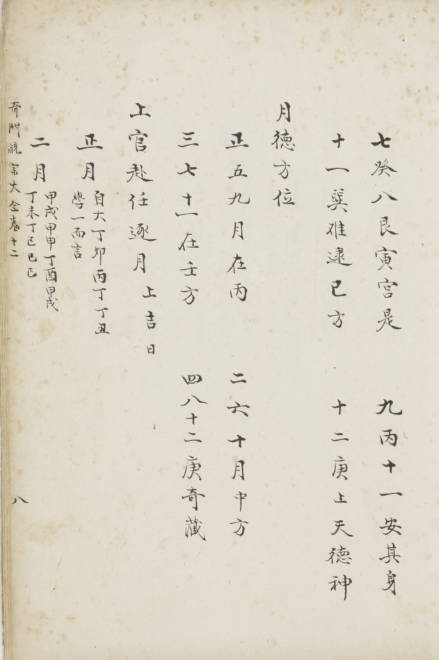 七癸八艮寅宮是　九丙十一安其身
十一巽难逮巳方　十二庚上天德神
月德方位
正五九月在丙　二六十月中方
三七十一在壬方　四八十二庚奇藏
上官赴任逐月上吉日
正月　自大丁卯丙丁丁丑
而言
二月　甲戌甲申丁酉甲戌
丁未丁巳己巳
奇門統宗大全卷十二　八